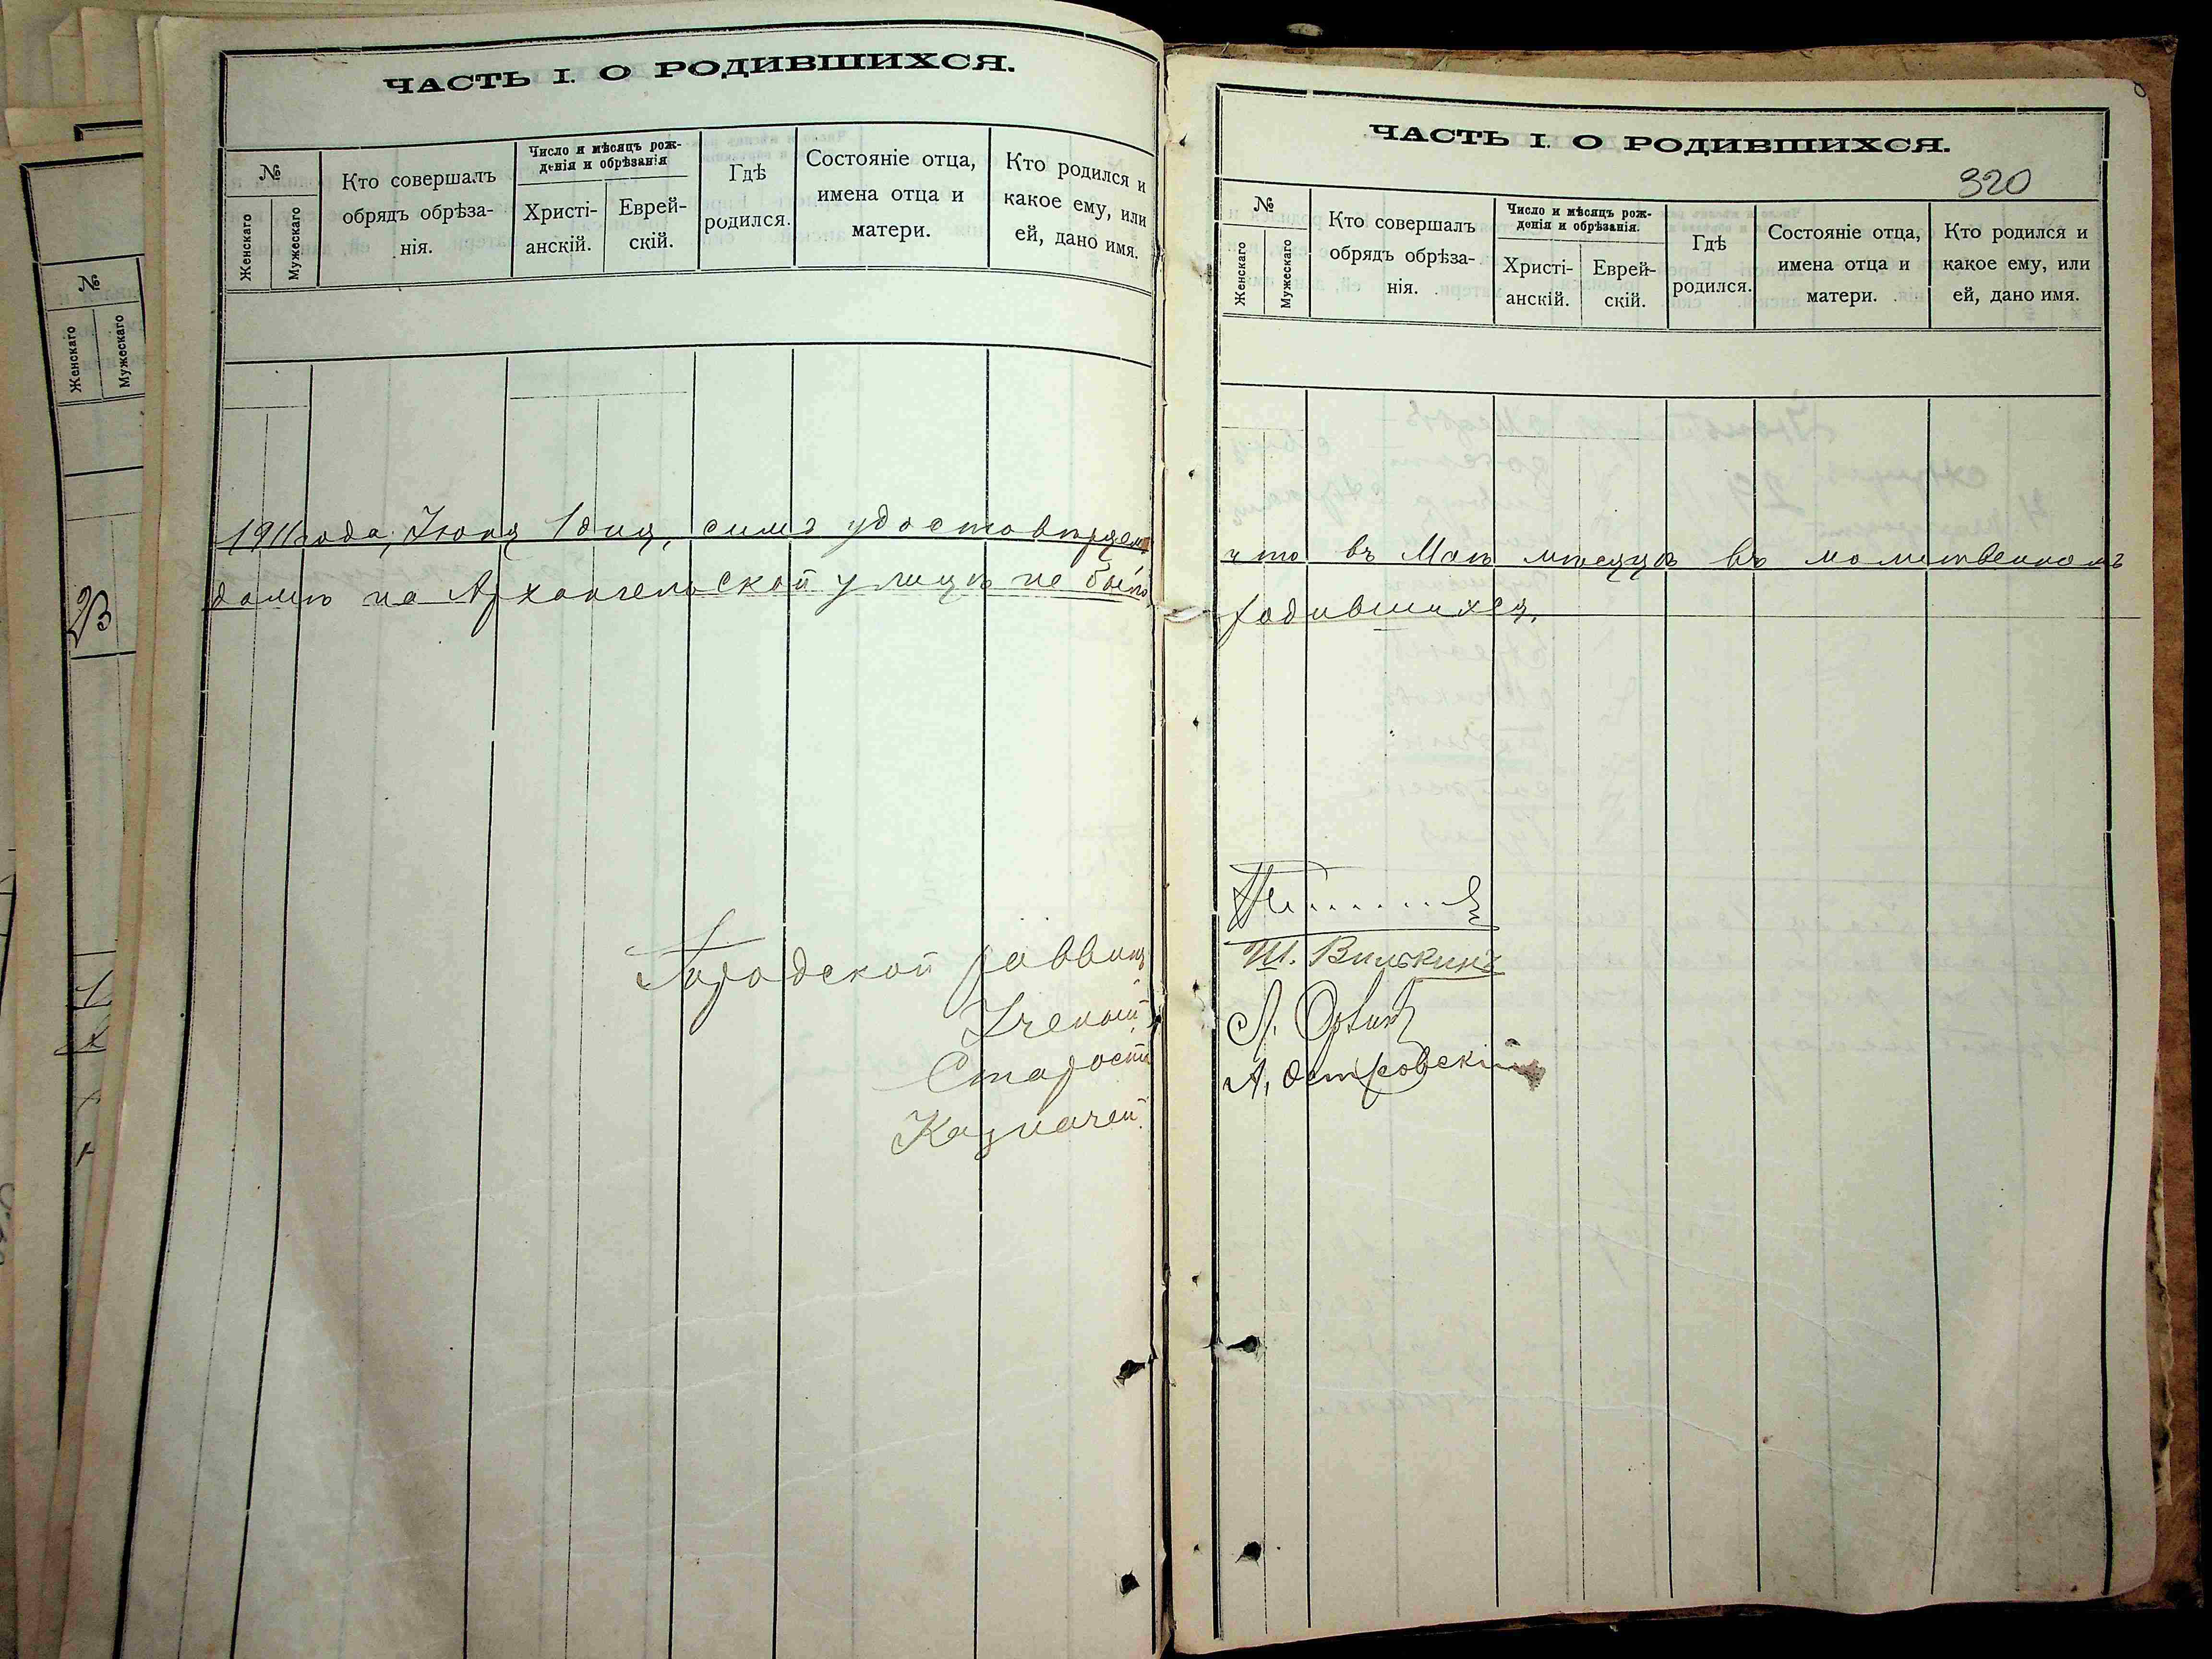 ЧАСТЬ I. О РОДИВШИХСЯ.
№
Женскаго
Мужескаго
Кто совершалъ
обрядъ обрѣза-
нія.
Число и мѣсяцъ рож-
денія и обрѣзанія
Христі-
анскій.
Еврей-
скій.
Гдѣ
родился.
Состояніе отца,
имена отца и
матери.
Кто родился и
какое ему, или
ей, дано имя.
1911 года, Іюня 1 дня, симъ удостовѣряемъ
домѣ на Архангельской улицѣ не было
Городской раввинъ
Ученый
Староста
Казначей
ЧАСТЬ I. О РОДИВШИХСЯ.
320
№
Женскаго
Мужескаго
Кто совершалъ
обрядъ обрѣза-
нія.
Число и мѣсяцъ рож-
денія и обрѣзанія.
Христі-
анскій.
Еврей-
скій.
Гдѣ
родился.
Состояніе отца,
имена отца и
матери.
Кто родился и
какое ему, или
ей, дано имя.
что въ Маѣ мѣсяцѣ въ молитвенномъ
родившихся.
Ш. Вилькинъ
А. Островскій
№
Женскаго
Мужескаго